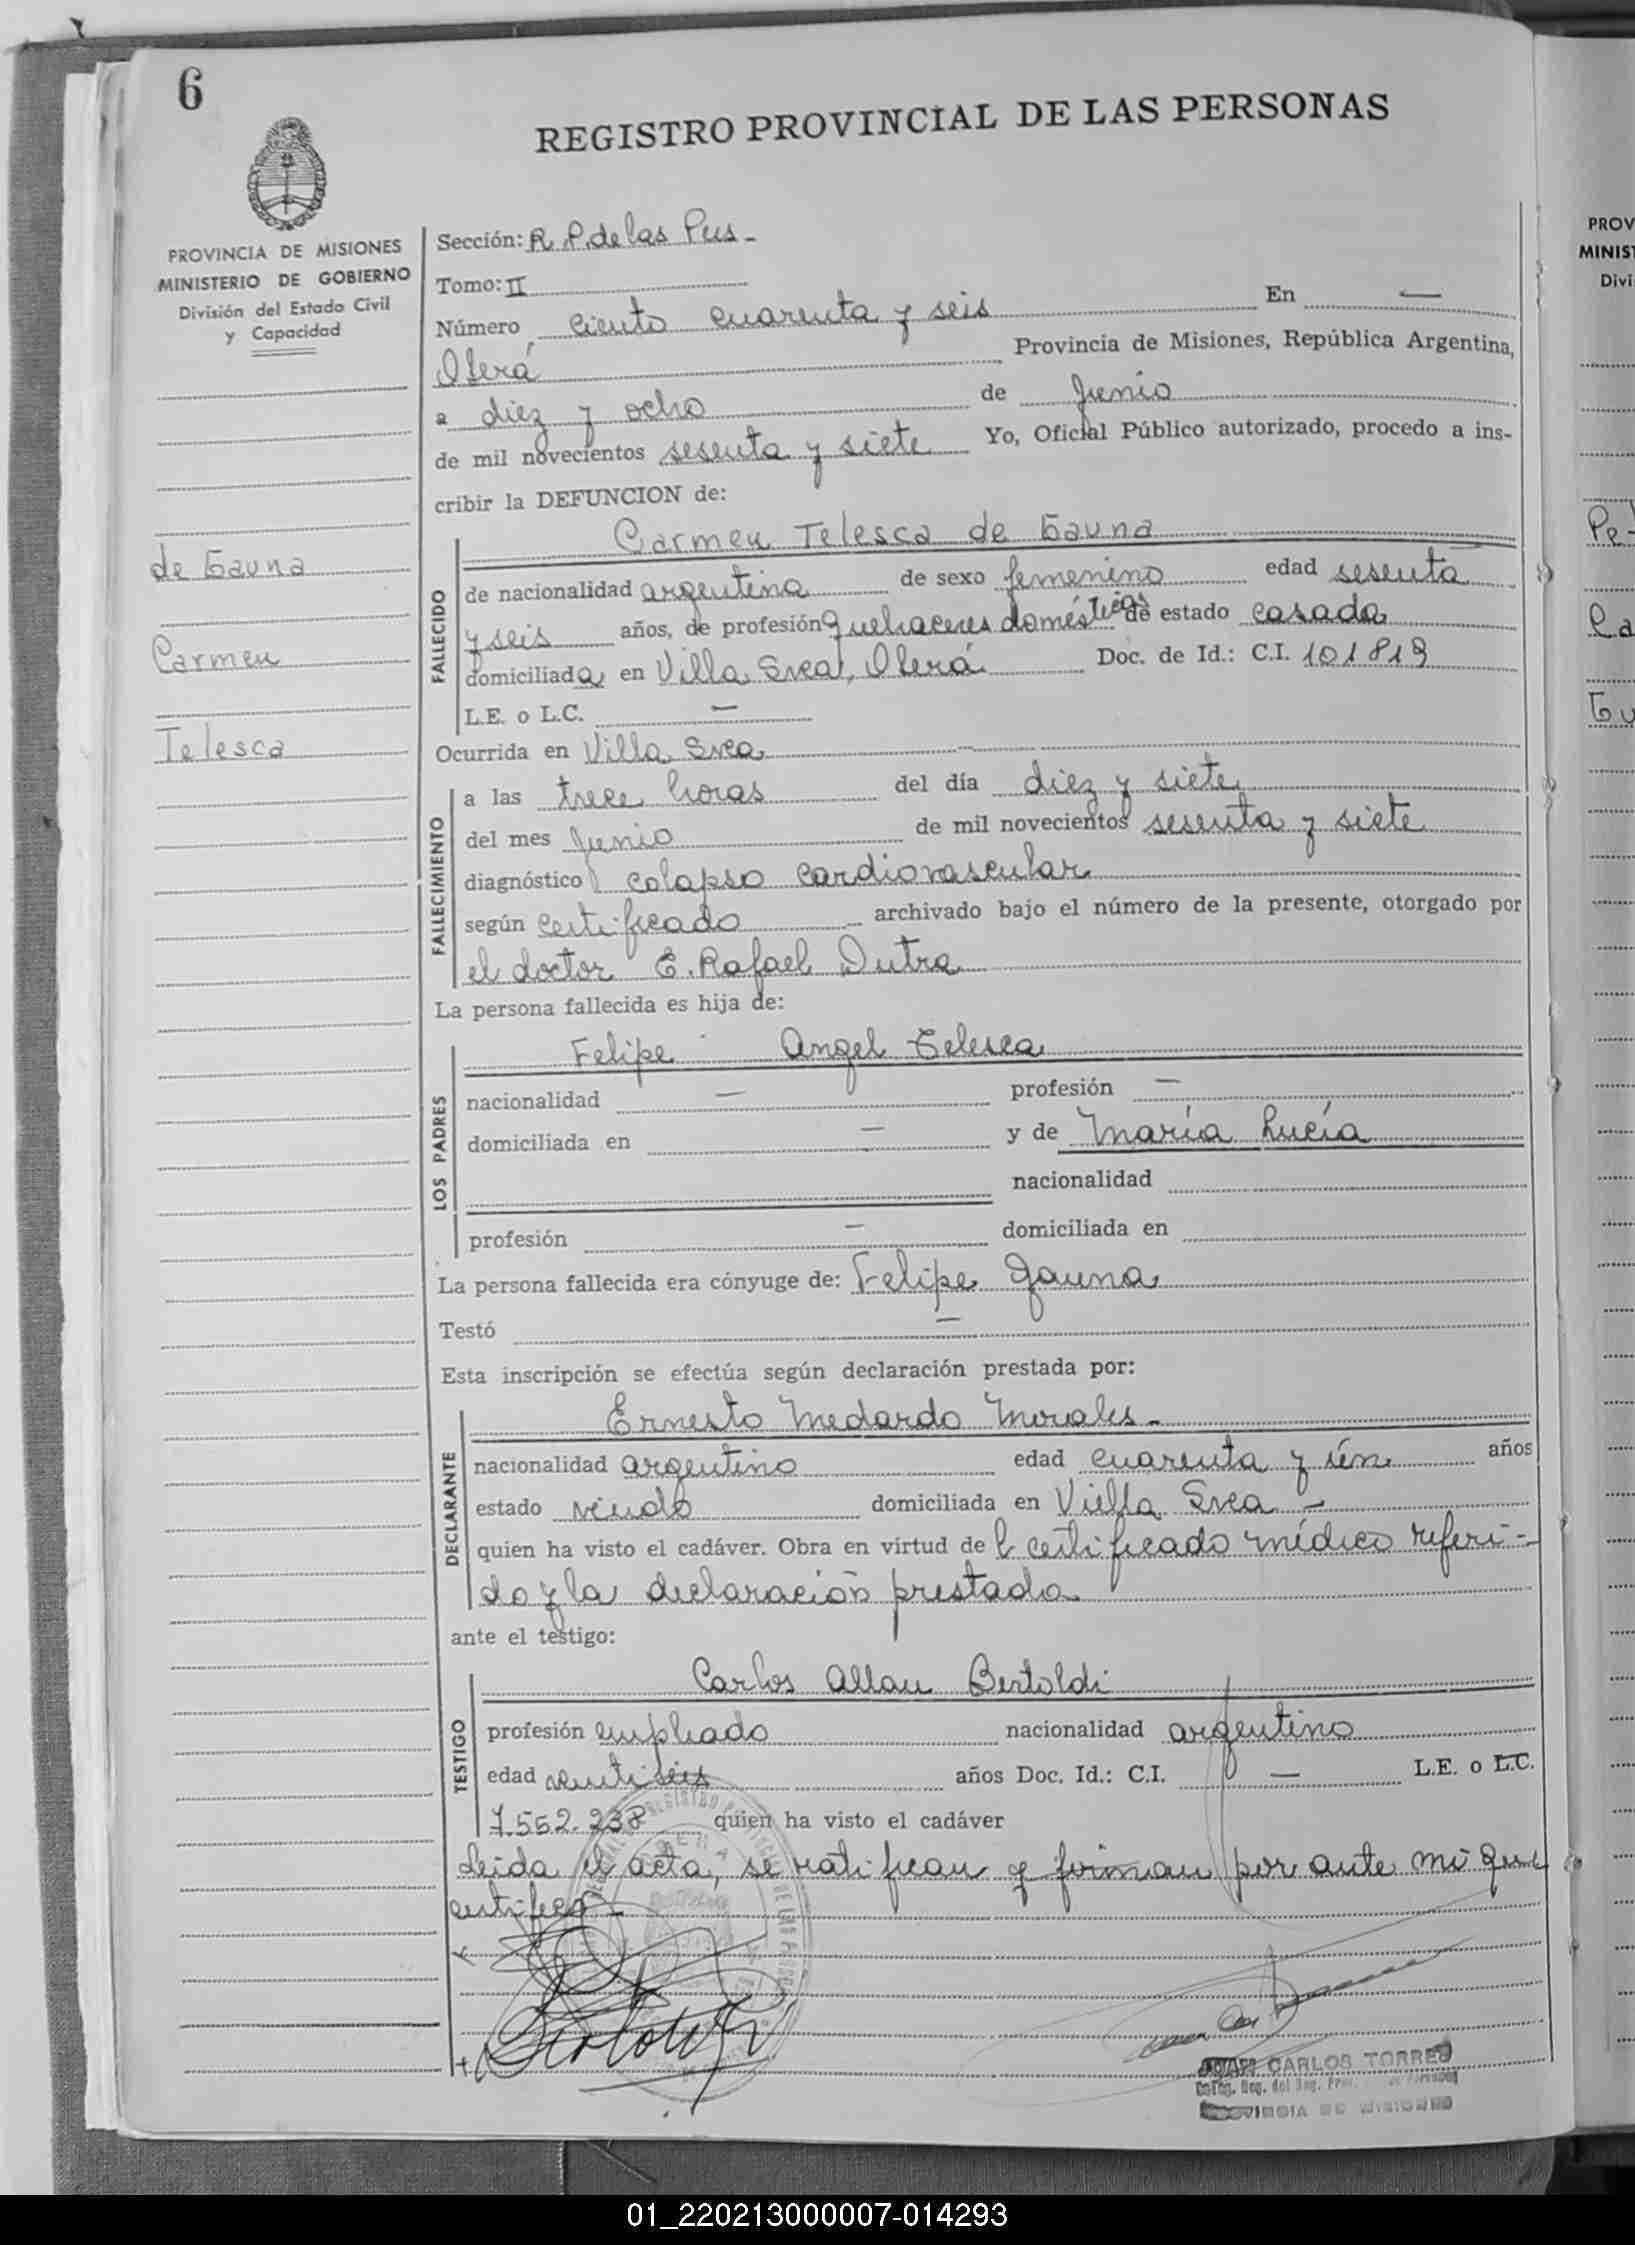 6
REGISTRO PROVINCIAL DE LAS PERSONAS
PROVINCIA DE MISIONES
MINISTERIO DE GOBIERNO
División del Estado Civil
y Capacidad
de Gauna
Carmen
Telesca
Sección: R. P. de las Pers -
Tomo: II
Número ciento cuarenta y seis En —
Oberá Provincia de Misiones, República Argentina,
a diez y ocho de Junio
de mil novecientos sesenta y siete Yo, Oficial Público autorizado, procedo a ins-
cribir la DEFUNCION de:
FALLECIDO
Carmen Telesca de Gauna
de nacionalidad argentina de sexo femenino edad sesenta
y seis años, de profesión quehaceres domésticos de estado casada
domiciliada en Villa Svea, Oberá Doc. de Id.: C.I. 101819
L.E. o L.C. —
Ocurrida en Villa Svea
FALLECIMIENTO
a las trece horas del día diez y siete
del mes Junio de mil novecientos sesenta y siete
diagnóstico colapso cardiovascular
según certificado archivado bajo el número de la presente, otorgado por
el doctor E. Rafael Dutra
La persona fallecida es hija de:
LOS PADRES
Felipe Angel Telesca
nacionalidad — profesión —
domiciliada en — y de María Lucía
nacionalidad
profesión — domiciliada en
La persona fallecida era cónyuge de: Felipe Gauna
Testó —
Esta inscripción se efectúa según declaración prestada por:
DECLARANTE
Ernesto Medardo Morales -
nacionalidad argentino edad cuarenta y ún años
estado viudo domiciliada en Villa Svea -
quien ha visto el cadáver. Obra en virtud del certificado médico referi-
do y la declaración prestada
ante el testigo:
TESTIGO
Carlos Allan Bertoldi
profesión empleado nacionalidad argentino
edad veintiseis años Doc. Id.: C.I. — L.E. o L.C.
7.552.238 quien ha visto el cadáver
Leida el acta, se ratifican y firman por ante mi que
certifico -
Bertoldi
JUAN CARLOS TORRES
PROVINCIA DE MISIONES
PROV
MINIST
Divi
Pe-
Ca
Gu
01_220213000007-014293